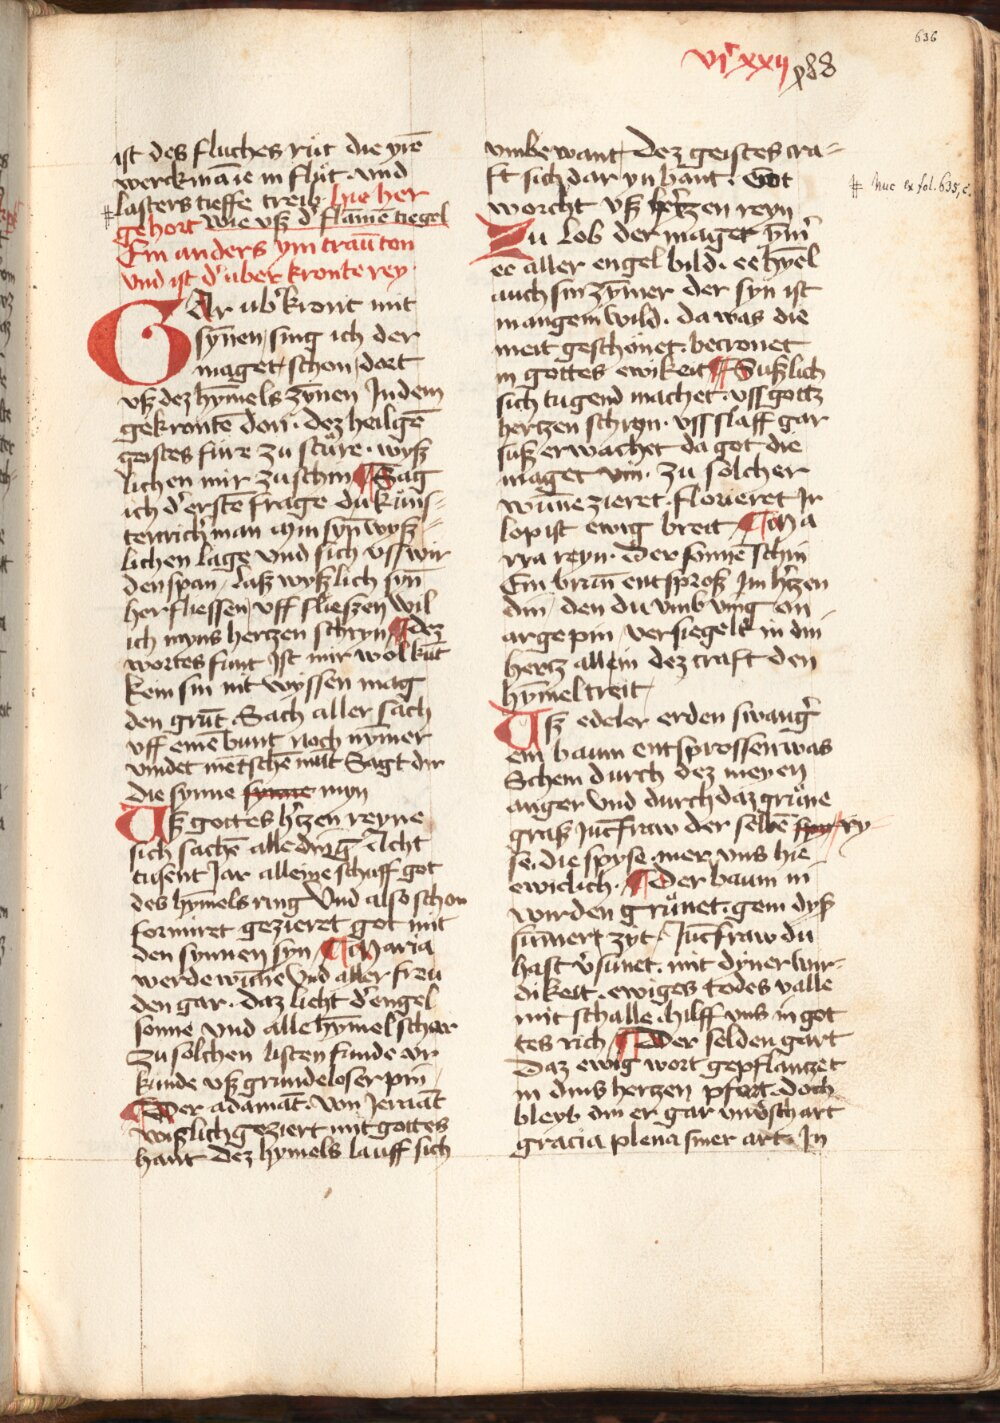 636
vjͨ xxij
ist des fluches rüt die yrē
werckmā ie in flüt · vnd
lasters tieffe treib · hie her
gehort wie vß d' flāmē tiegel
Ein anders ym traū ton
vnd ist d' vber kronte rey
GAr vb' kront mit
synen sing ich der
maget schon dort
vß dez hymels zynen In dem
gekrontē don · dez heiligē
geistes füre zu stüre · wyß
lichen mir zu schin Sag
ich d' erstē frage du küns-
tenrich man myn syn wyß-
lichen lage vnd sich vff wir
den span / daß wyßlich syn
her fliessen vff slieszen wil
ich myns hertzen schryn dez
wortes funt Ist mir wol kūt
kein sin nit wyssen mag
den grūt Sach aller sach
vff einē bunt noch nymer
vindet mētschē mūt Sagt dir
die synne synne myn
Vß gottes h'tzen reyne
sich sachē alle ding Acht
tusent Jar alleine schuff got
des hymels ring Vnd also schon
formiret gezieret got mit
den synnen syn Maria
werde wūne Vnd aller freu
den gar · daz licht d' engel
sonne vnd alle hymel schar
zu solchen listen funde vr
kunde vß grundeloser pin
Der adamāt · von Jemāt
wißlich geziert mit gottes
hant dez hymels lauff sich
vmbe want dez geistes cra-
ft sich dar yn bant · Got
worcht vß hertzen reyn
Zu lob der maget ym'
ee aller engel bild · ee hymel
auch sin zymer der syn ist
mangem wild · da was die
meit geschonet · becronet
in gottes ewikeit Sußlich
sich tugend machet · vff gottz
hertzen schryn · vff slaff gar
suß erwachet da got die
maget vin · zu solcher
wūne zieret · florieret Ir
lop ist ewig breit Ma
rya reyn · Der sonnē schin
Ein brun entsproß Im h'tzen
din / den du vmb ving on
arge pin / versiegelt in din
hertz allein dez craft den
hymel treit
Vß edeler erden swang'
ein baum entsprossen was
Schein durch dez meyen
anger vnd durch daz grüne
graß Jūcfraw der selbē ry-
se · die spyse · mer vns hie
ewiclich · Der baum in
wirden grünet · gem dyß
sūmerz zyt · Jūcfraw du
hast v'sunet · mit dyner wir-
dikeit · ewiges todes valle
mit schalle · hilff vns in got
tes rich Der selden gart
Daz ewig wort gepflantzet
in dins hertzen pfort · doch
bleyb din er gar
gracia plena siner art · In
# huc ex fol. 635, c.